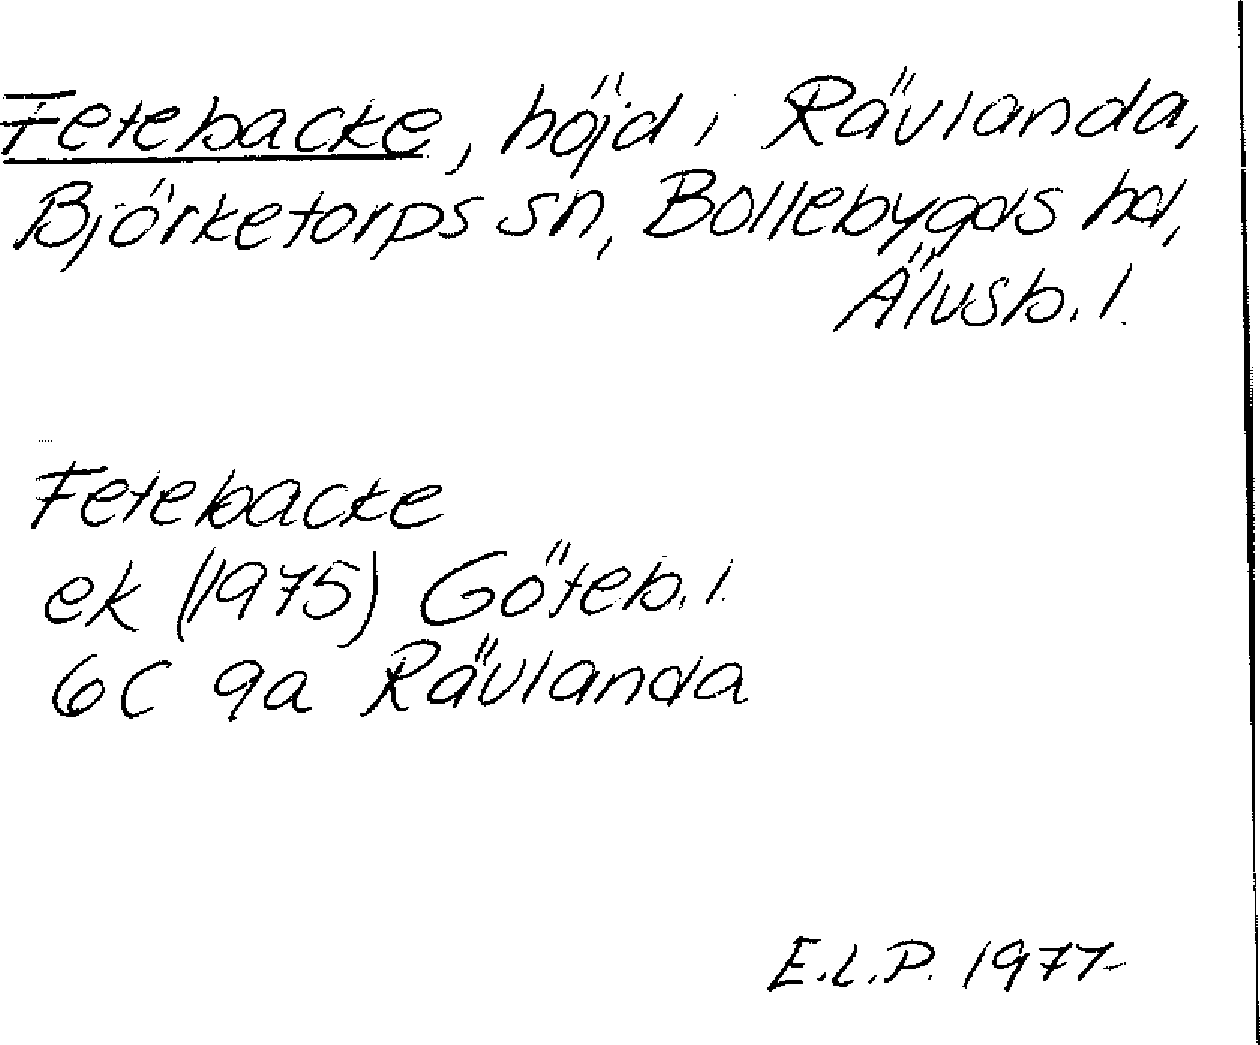 Fetebacke, höjd i Rävlanda,
Björketorps sn, Bollebygds hd,
Älvsb. l.
Fetebacke
ek (1975) Göteb. l.
6C 9a Rävlanda
E.L.P. 1977